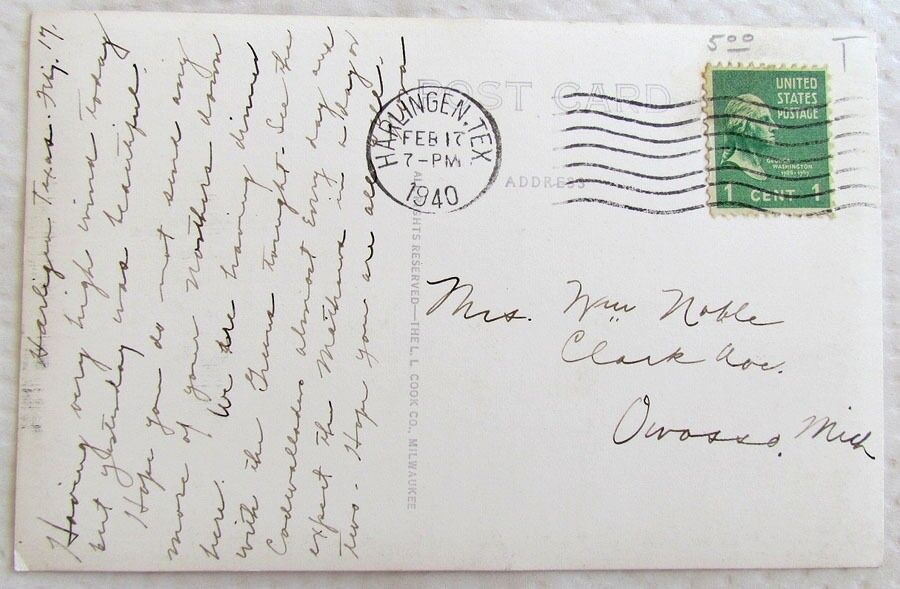 Harligen Texas. Fri. 17.
Having very high wind today
but yesterday was beautiful.
Hope you do not send any
more of your Northers down
here. We are having dinner
with the tonight. See the
Cadwalladers almost Every day and
expect the Mathews in a day or
two. Hope you are all well.
POST CARD
ADDRESS
ALL RIGHTS RESERVED—THE L. L. COOK CO., MILWAUKEE
HARLINGEN, TEX
FEB 17
7-PM
1940
5⁰⁰
T
UNITED
STATES
POSTAGE
GEORGE
WASHINGTON
1789-1797
1 CENT 1
Mrs. Wm Noble
Clark Ave.
Owosso, Mich